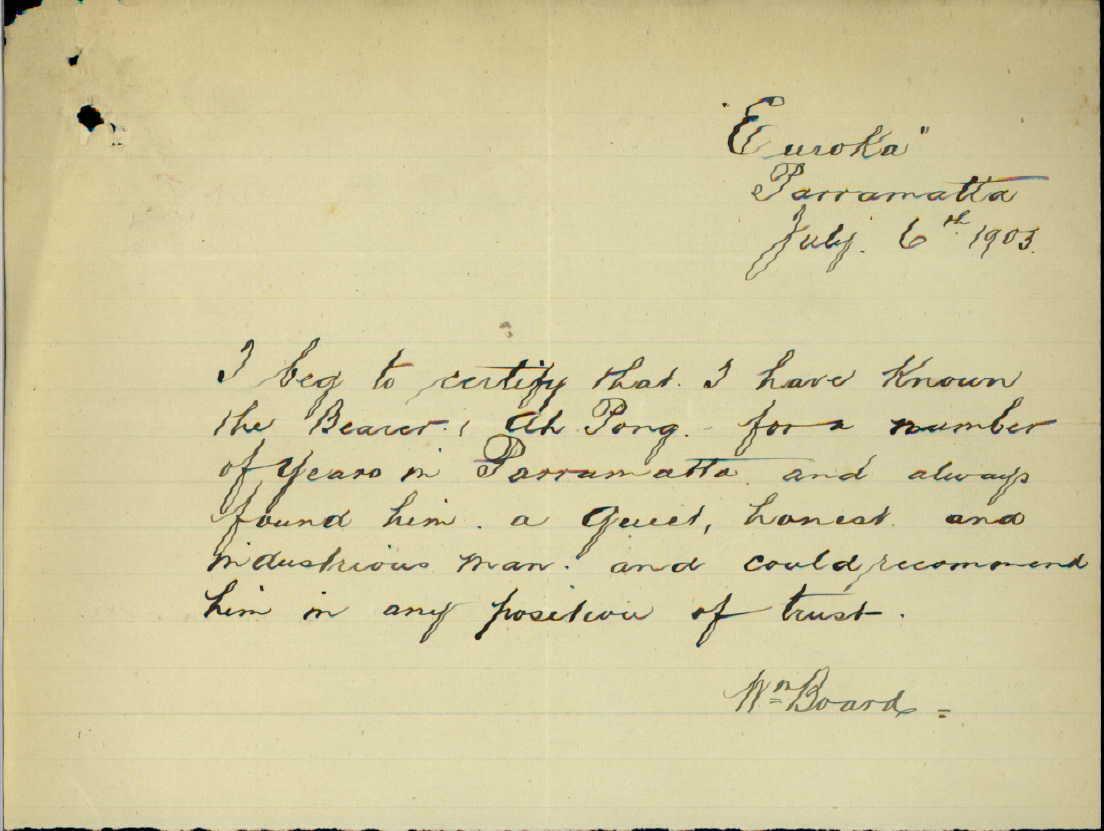 "Euroka"
Parramatta
July. 6th 1903.
I beg to certify that. I have Known
the Bearer., Ah Pong. for a number
of Years in Parramatta. and always
found him. a Quiet, honest. and
industrious man. and could recommend
him in any position of trust.
Wm Board